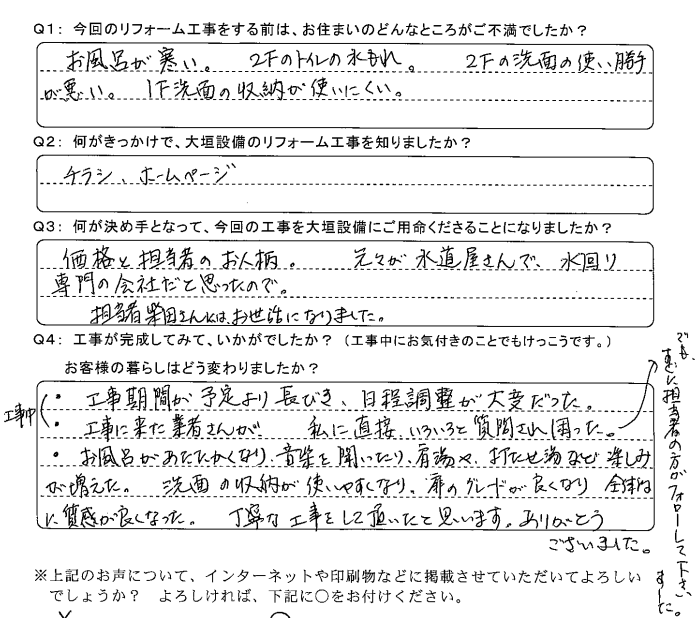 Q1: 今回のリフォーム工事をする前は、お住まいのどんなところがご不満でしたか？
お風呂が寒い。 2Fのトイレの水もれ。 2Fの洗面の使い勝手
が悪い。 1F洗面の収納が使いにくい。
Q2: 何がきっかけで、大垣設備のリフォーム工事を知りましたか？
チラシ、ホームページ
Q3: 何が決め手となって、今回の工事を大垣設備にご用命くださることになりましたか？
価格と担当者のお人柄。 元々が水道屋さんで、水回り
専門の会社だと思ったので。
担当者柴田さんには、お世話になりました。
Q4: 工事が完成してみて、いかがでしたか？（工事中にお気付きのことでもけっこうです。）
お客様の暮らしはどう変わりましたか？
工事中
・ 工事期間が予定より長びき、日程調整が大変だった。
・ 工事に来た業者さんが 私に直接、いろいろと質問され困った。
でも、すぐに担当者の方がフォローして下さいました。
・ お風呂があたたかくなり、音楽を聞いたり、肩湯や、打たせ湯など楽しみ
が増えた。 洗面の収納が使いやすくなり、扉のグレードが良くなり 全体的
に質感が良くなった。 丁寧な工事をして頂いたと思います。ありがとう
ございました。
※上記のお声について、インターネットや印刷物などに掲載させていただいてよろしい
でしょうか？ よろしければ、下記に○をお付けください。